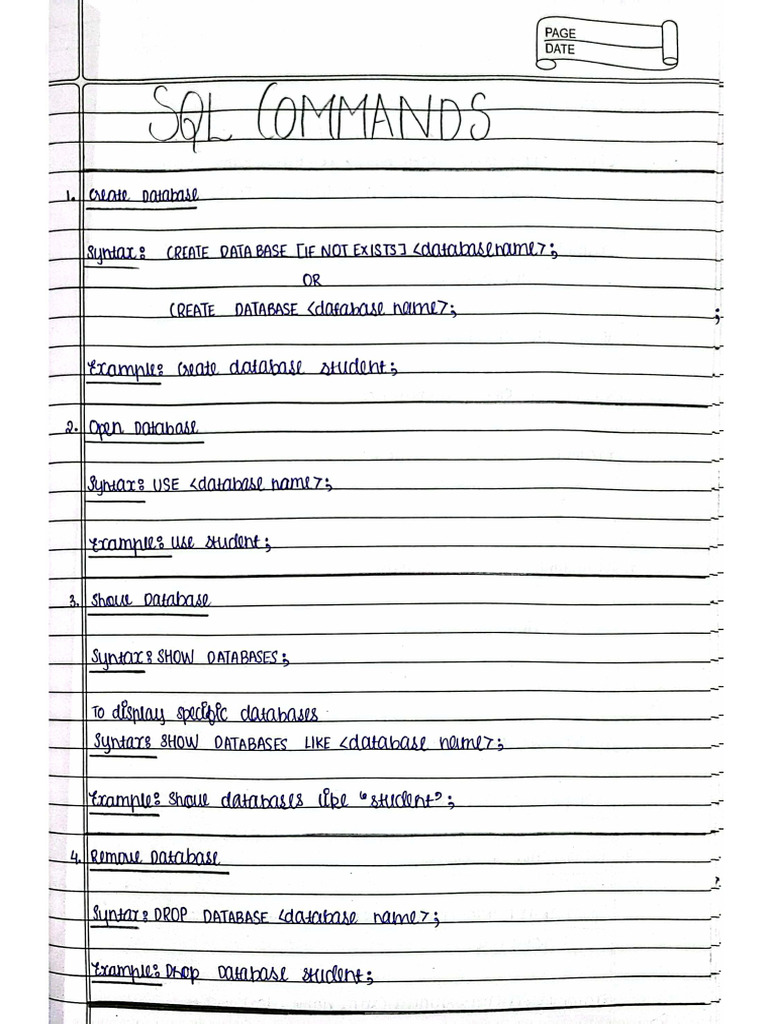 PAGE
DATE
SQL COMMANDS
1. Create Database
Syntax: CREATE DATABASE [IF NOT EXISTS] <databasename>;
OR
CREATE DATABASE <database name>;
Example: Create database student;
2. Open Database
Syntax: USE <database name>;
Example: Use student;
3. Show Database
Syntax: SHOW DATABASES;
To display specific databases
Syntax: SHOW DATABASES LIKE <database name>;
Example: Show databases like "student";
4. Remove Database
Syntax: DROP DATABASE <database name>;
Example: Drop Database student;